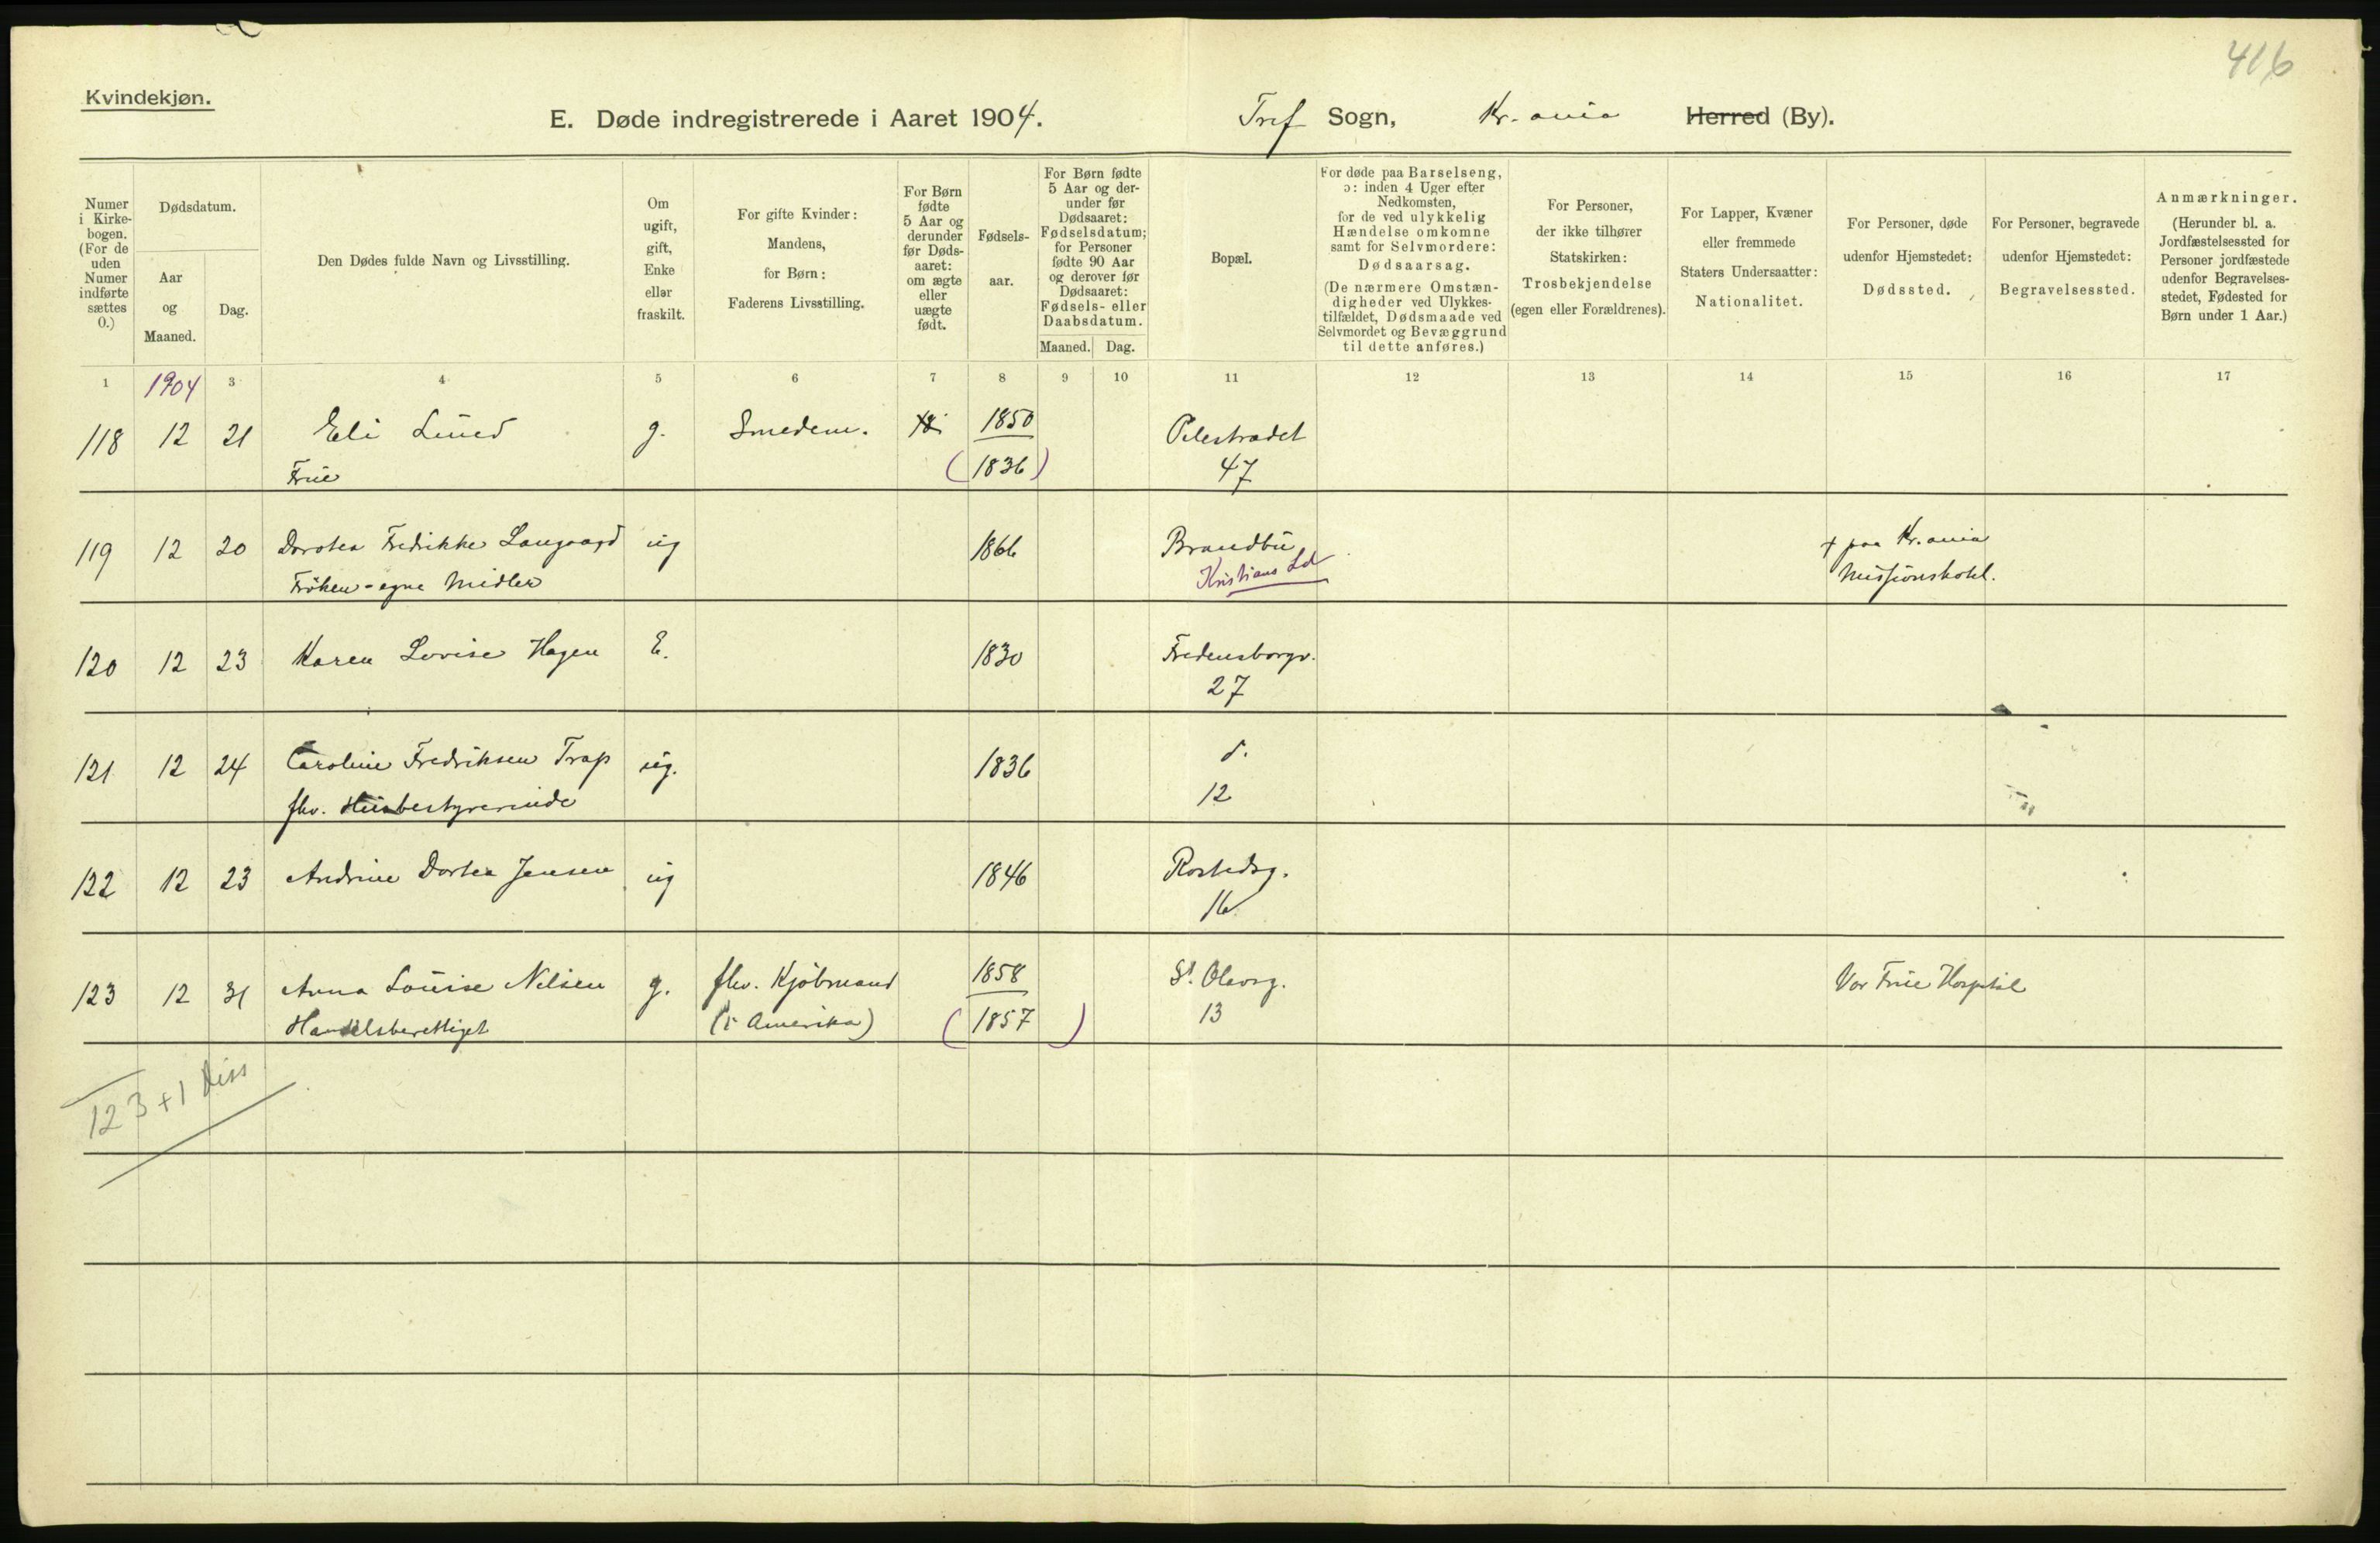 416
Kvindekjøn.
E. Døde indregistrerede i Aaret 1904. Tref Sogn, Kr.ania Herred (By).
Numer i Kirkebogen. (For de uden Numer indførte sættes 0.)
Dødsdatum.
Aar og Maaned.
Dag.
Den Dødes fulde Navn og Livsstilling.
Om ugift, gift, Enke eller fraskilt.
For gifte Kvinder: Mandens, for Børn: Faderens Livsstilling.
For Børn fødte 5 Aar og derunder før Dødsaaret: om ægte eller uægte født.
Fødselsaar.
For Børn fødte 5 Aar og derunder før Dødsaaret: Fødselsdatum; for Personer fødte 90 Aar og derover før Dødsaaret: Fødsels- eller Daabsdatum.
Maaned. Dag.
Bopæl.
For døde paa Barselseng, ɔ: inden 4 Uger efter Nedkomsten, for de ved ulykkelig Hændelse omkomne samt for Selvmordere: Dødsaarsag. (De nærmere Omstændigheder ved Ulykkestilfældet, Dødsmaade ved Selvmordet og Bevæggrund til dette anføres.)
For Personer, der ikke tilhører Statskirken: Trosbekjendelse (egen eller Forældrenes).
For Lapper, Kvæner eller fremmede Staters Undersaatter: Nationalitet.
For Personer, døde udenfor Hjemstedet: Dødssted.
For Personer, begravede udenfor Hjemstedet: Begravelsessted.
Anmærkninger. (Herunder bl. a. Jordfæstelsessted for Personer jordfæstede udenfor Begravelsesstedet, Fødested for Børn under 1 Aar.)
1 1904 3 4 5 6 7 8 9 10 11 12 13 14 15 16 17
118 12 21 Eli Lund g. Smedem. 1850 Pilestrædet
Frue (1836) 47
119 12 20 Dorotea Fredrikke Langaard ug 1866 Brandbu + paa Kr.ania
Frøken - egne Midler Kristians Ld Missionshotel.
120 12 23 Karen Lovise Hagen E. 1830 Fredensborgv.
27
121 12 24 Caroline Fredriksen Trap ug. 1836 d.
fhv. Husbestyrerinde 12
122 12 23 Andrine Dortea Jensen ug 1846 Rostedsg.
16
123 12 31 Anna Louise Nilsen g. fhv. Kjöbmand 1858 St. Olavsg. Vor Frue Hospital
Handelsberettiget (i Amerika) (1857) 13
123 + 1 Diss